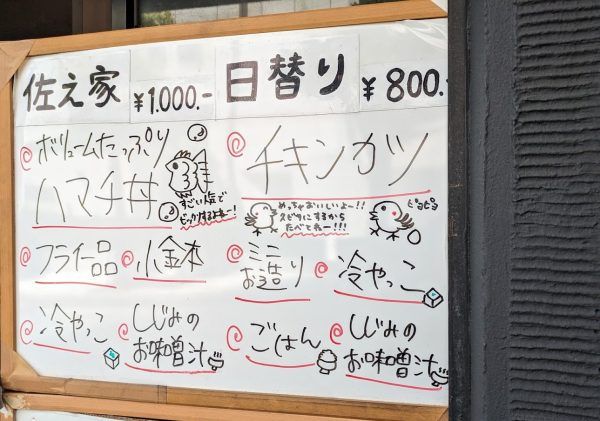 佐え家 ¥1.000.-
@ボリュームたっぷり
ハマチ丼
すごい人気で
ビックリするよねー!
@フライ一品 @小金本
@冷やっこ @しじみの
お味噌汁
日替り ¥800.
@チキンカツ
めっちゃおいしいよー!!
スピサにするから
たべてねー!!!
ピヨピヨ
@ミニ
お造り @冷やっこ
@ごはん @しじみの
お味噌汁